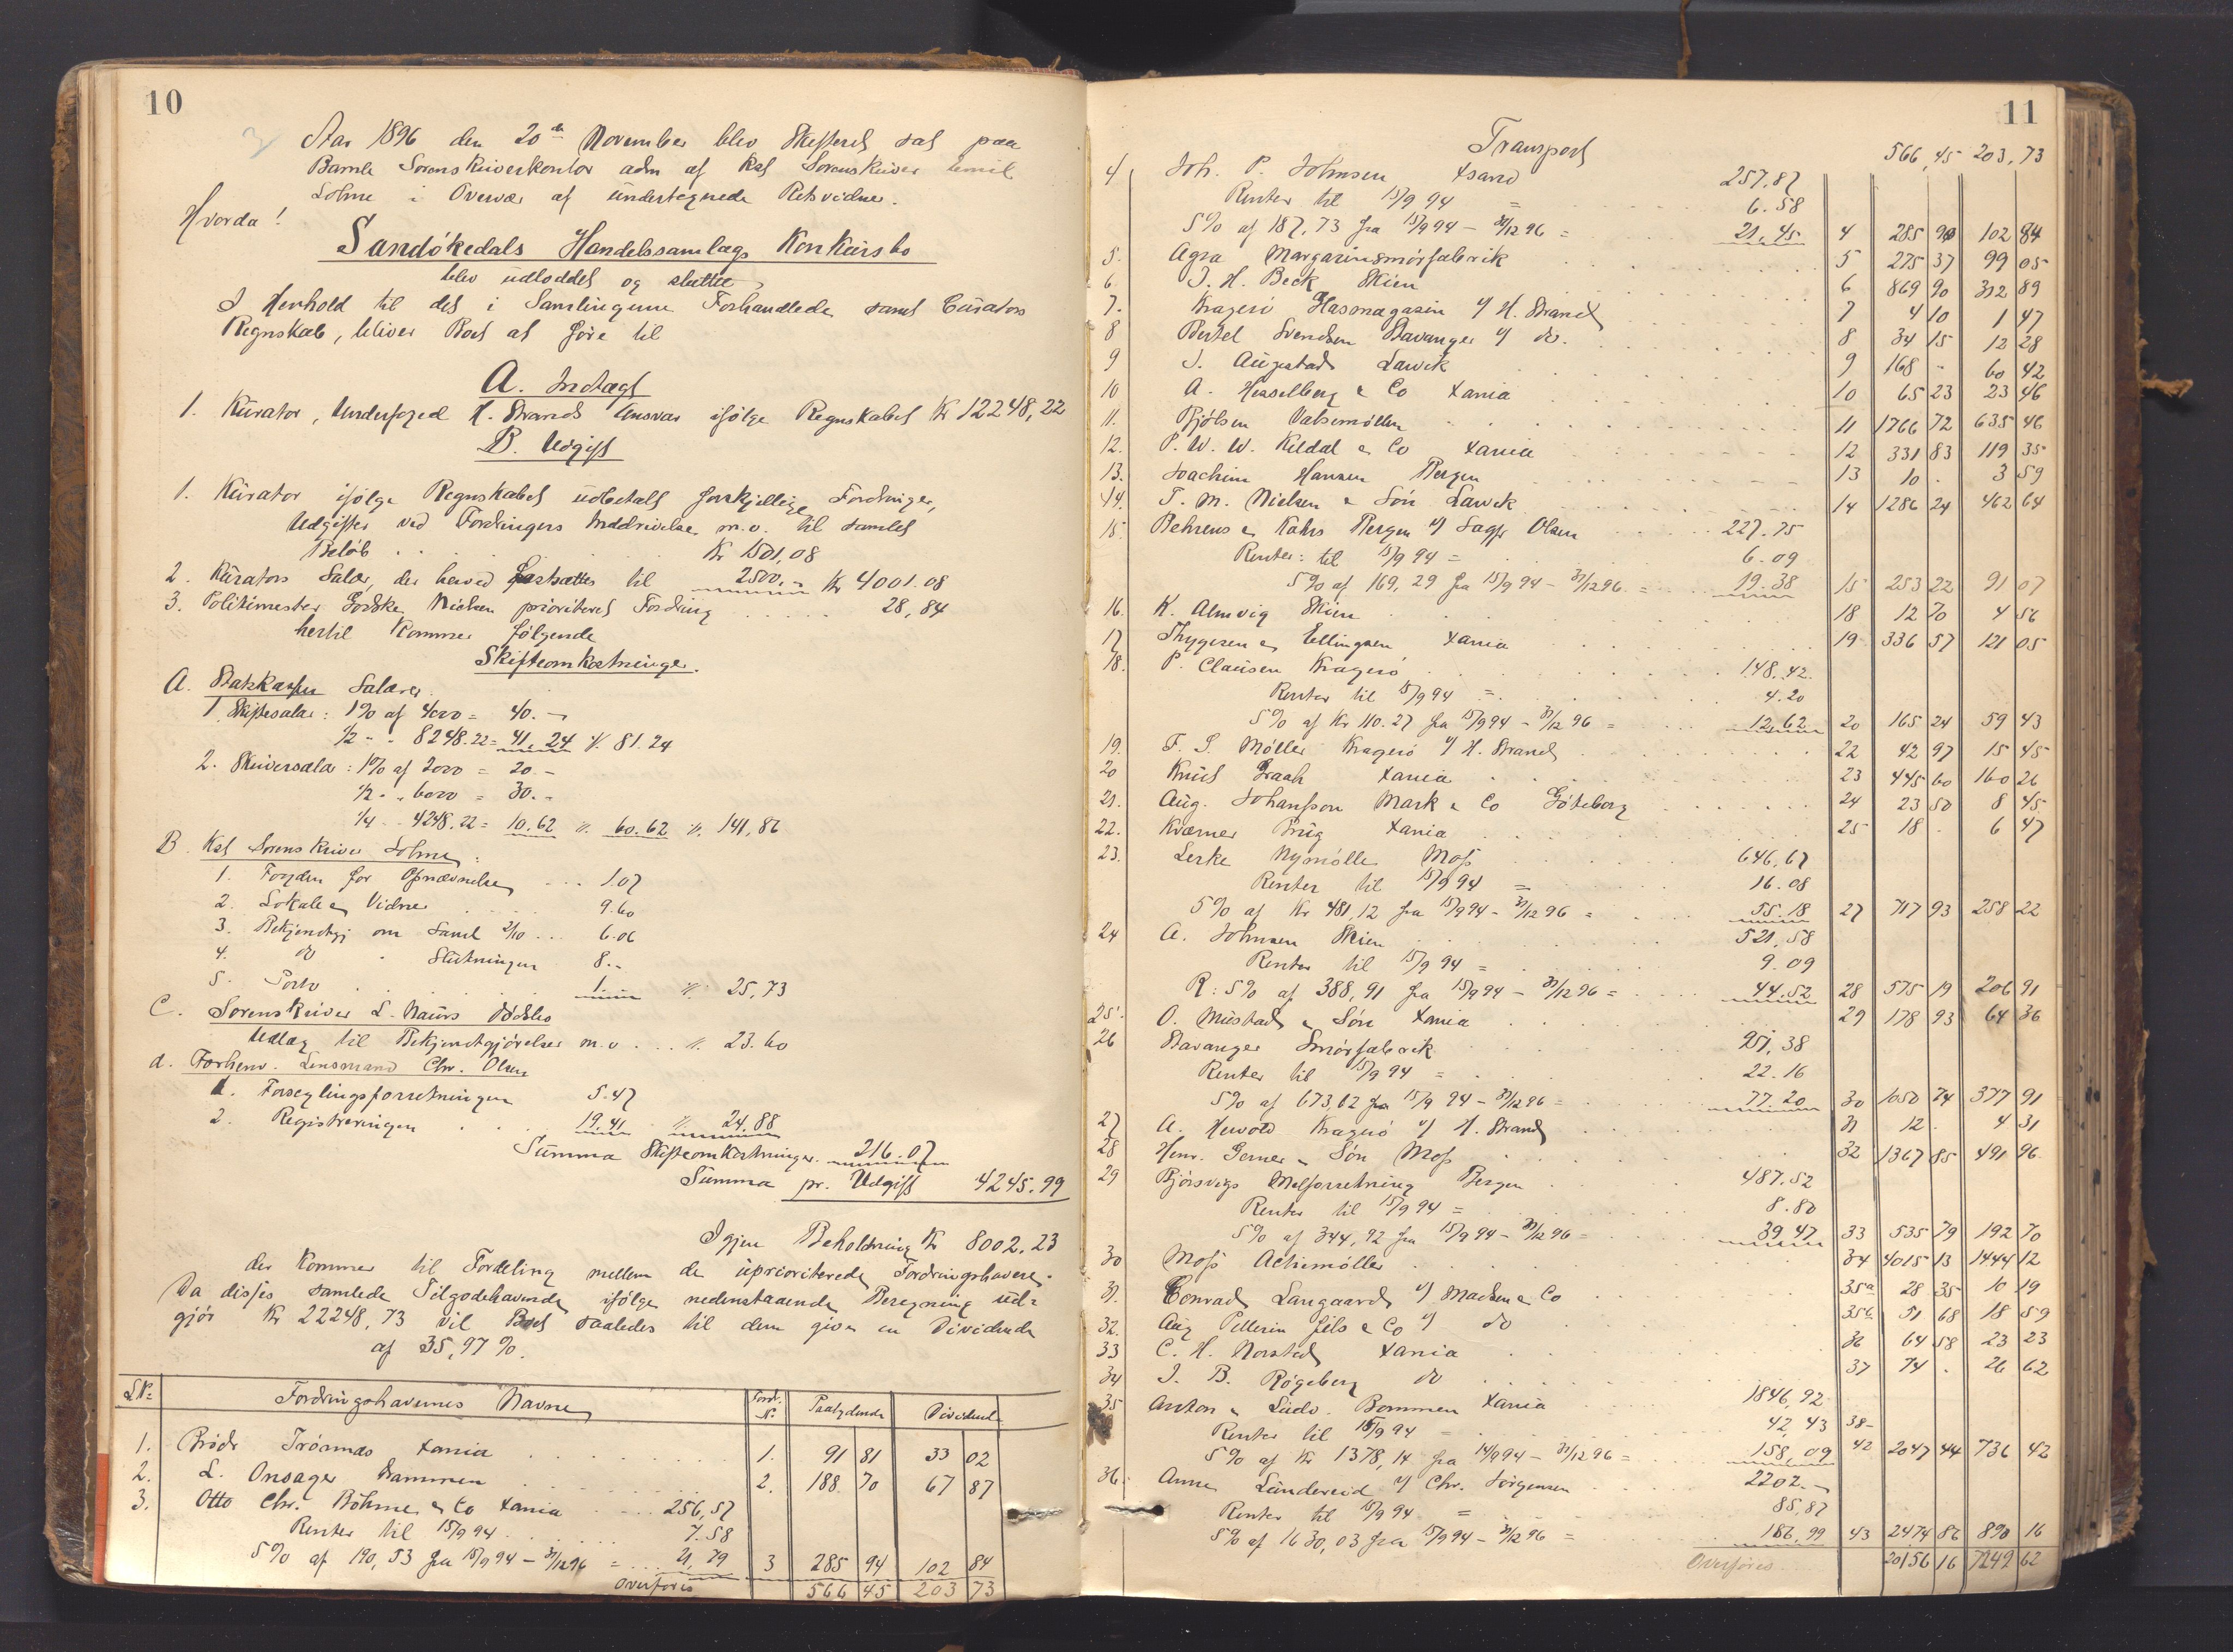 10
Aar 1896 den 20de November blev Skifteret sat paa
Bamle Sorenskriverkontor adm af Kst Sorenskriver Emil
Solme i Overvær af undertegnede Retsvidner.
Hvorda!
Sandökedals Handelssamlags Konkursbo
blev udloddet og sluttet
I Henhold til det i Samlingerne Forhandlede samt Curators
Regnskab, bliver Boet at före til
A. Indtægt
1. Kurator, Underfoged H. Strands Ansvar ifölge Regnskabet Kr 12248,22
B. Udgift
1. Kurator ifölge Regnskabet udbetalt forskjellige Fordringer,
Udgifter ved Fordringers Inddrivelse m.v. til samlet
Belöb . . . Kr 1501,08
2. Kurators Salær, der herved fastsættes til 2500.- Kr 4001.08
3. Politimester Godske Nielsen prioriteret Fordring . . . . . 28,84
hertil Kommer fölgende
Skifteomkostninger.
A. Statskassen Salærer.
1. Skiftesalær: 1% af 4000 = 40.-
1/2 - - 8248.22 = 41,24 % 81.24
2. Skriversalær: 1% af 2000 = 20.-
1/2 - - 6000 = 30.-
1/4 - - 4248.22 = 10.62 % 60.62 % 141,86
B. Kst Sorenskriver Solme:
1. Forgden for Opnævnelse ... 1.07
2. Lokale & Vidner 9.60
3. Bekjendtgj om Saml 2/10 ... 6.06
4. do - Slutningen 8.-
5. Porto 1.- % 25,73
C. Sorenskriver L. Maurs Dödsbo
Udlæg til Bekjendtgjörelser m.v. . . % 23.60
d. Forhenv. Lensmand Chr. Olsen
1. Forseglingsforretningen 5.47
2. Registreringen 19.41 % 24.88
Summa Skifteomkostninger. 216.07
Summa pr. Udgift 4245.99
Igjen Beholdning Kr 8002.23
der kommer til Fordeling mellem de uprioriterede Fordringshavere.
Da disses samlede Tilgodehavende ifölge nedenstaaende Beregning ud=
gjör Kr 22248,73 vil Boet saaledes til dem give en Dividende
af 35,97%.
LNo Fordringshavernes Navne Fordr. No Paalydende Dividende
1. Brödr Trösnnæs Xania 1. 91 81 33 02
2. L. Onsager Drammen 2. 188 70 67 87
3. Otto Chr. Böhme & Co Xania . . . 256,57
Renter til 15/9 94 . . . 7.58
5% af 190,53 fra 15/9 94 - 31/12 96 = . . 21,79 3 285 94 102 84
Overföres 566 45 203 73
11
Transport 566,45 203,73
4 Joh. P. Johnsen Xsand 257.87
Renter til 15/9 94 = 6.58
5% af 187,73 fra 15/9 94 - 31/12 96 = 21,45 4 285 90 102 84
5. Agra Margarinsmörfabrik 5 275 37 99 05
6. J. H. Beck Skien 6 869 90 312 89
7. Kragerö Glasmagasin v/ H. Strand 7 4 10 1 47
8 Bertel Svendsen Stavanger v/ do. 8 34 15 12 28
9 J. Augestad Larvik 9 168 - 60 42
10 A. Hesselberg & Co Xania 10 65 23 23 46
11. Bjölsen Valsemölle 11 1766 72 635 46
12. P. W. W. Kildal & Co Xania 12 331 83 119 35
13. Joachim Hansen Bergen 13 10 . 3 59
14. T. M. Nielsen & Sön Larvik 14 1286 24 462 64
15. Behrens & Kahrs Bergen v/ Sagf Olsen 227.75
Renter: til 15/9 94 = 6.09
5% af 169,29 fra 15/9 94 - 31/12 96. = 19.38 15 253 22 91 07
16. K. Almvig Skien 18 12 70 4 56
17 Thygesen & Ellingsen Xania 19 336 57 121 05
18. P. Clausen Kragerö 148.42.
Renter til 15/9 94 = 4.20
5% af Kr 110.27 fra 15/9 94 - 31/12 96 = 12,62 20 165 24 59 43
19. F. S. Möller Kragerö v/ H. Strand 22 42 97 15 45
20 Knud Graah Xania 23 445 60 160 26
21. Aug. Johansson Mark & Co Göteborg 24 23 50 8 45
22. Kværner Brug Xania 25 18 - 6 47
23. Lerke Nymölle Moss 646,67
Renter til 15/9 94 = 16.08
5% af Kr 481,12 fra 15/9 94 - 31/12 96 = 55.18 27 717 93 258 22
24 A. Johnsen Skien 521,58
Renter til 15/9 94 = 9.09
R: 5% af 388,91 fra 15/9 94 - 31/12 96 = 44.52 28 575 19 206 91
25. O. Mustad & Sön Xania 29 178 93 64 36
26 Stavanger Smörfabrik 951,38
Renter til 15/9 94 = 22.16
5% af 673,62 fra 15/9 94 - 31/12 96 = 77.20 30 1050 74 377 91
27 A. Hewold Kragerö v/ H. Strand 31 12 . 4 31
28 Henr. Gerner & Sön Moss 32 1367 85 491 96.
29 Björsvigs Melforretning Bergen 487.52
Renter til 15/9 94 = 8.80
5% af 344,92 fra 15/9 94 - 31/12 96 = 39,47 33 535 79 192 70
30 Moss Actiemölle 34 4015 13 1444 12
31. Conrad Langaard v/ Madsen & Co 35a 28 35 10 19
32. Aug Pellerin fils & Co v/ do 35b 51 68 18 59
33 C. H. Norstad Xania 36 64 58 23 23
34 J. B. Rögeberg do 37 74 . 26 62
35 Anton & Ludv. Bommen Xania 1846,92
Renter til 15/9 94 = 42,43 38-
5% af Kr 1378,14 fra 14/9 94 - 31/12 96 = 158,09 42 2047 44 736 42
36. Anne Lundereid v/ Chr. Jörgensen 2202.-
Renter til 15/9 94 = 85,87
5% af 1630,03 fra 15/9 94 - 31/12 96 = 186,99 43 2474 86 890 16
Overföres 20156 16 7249 62